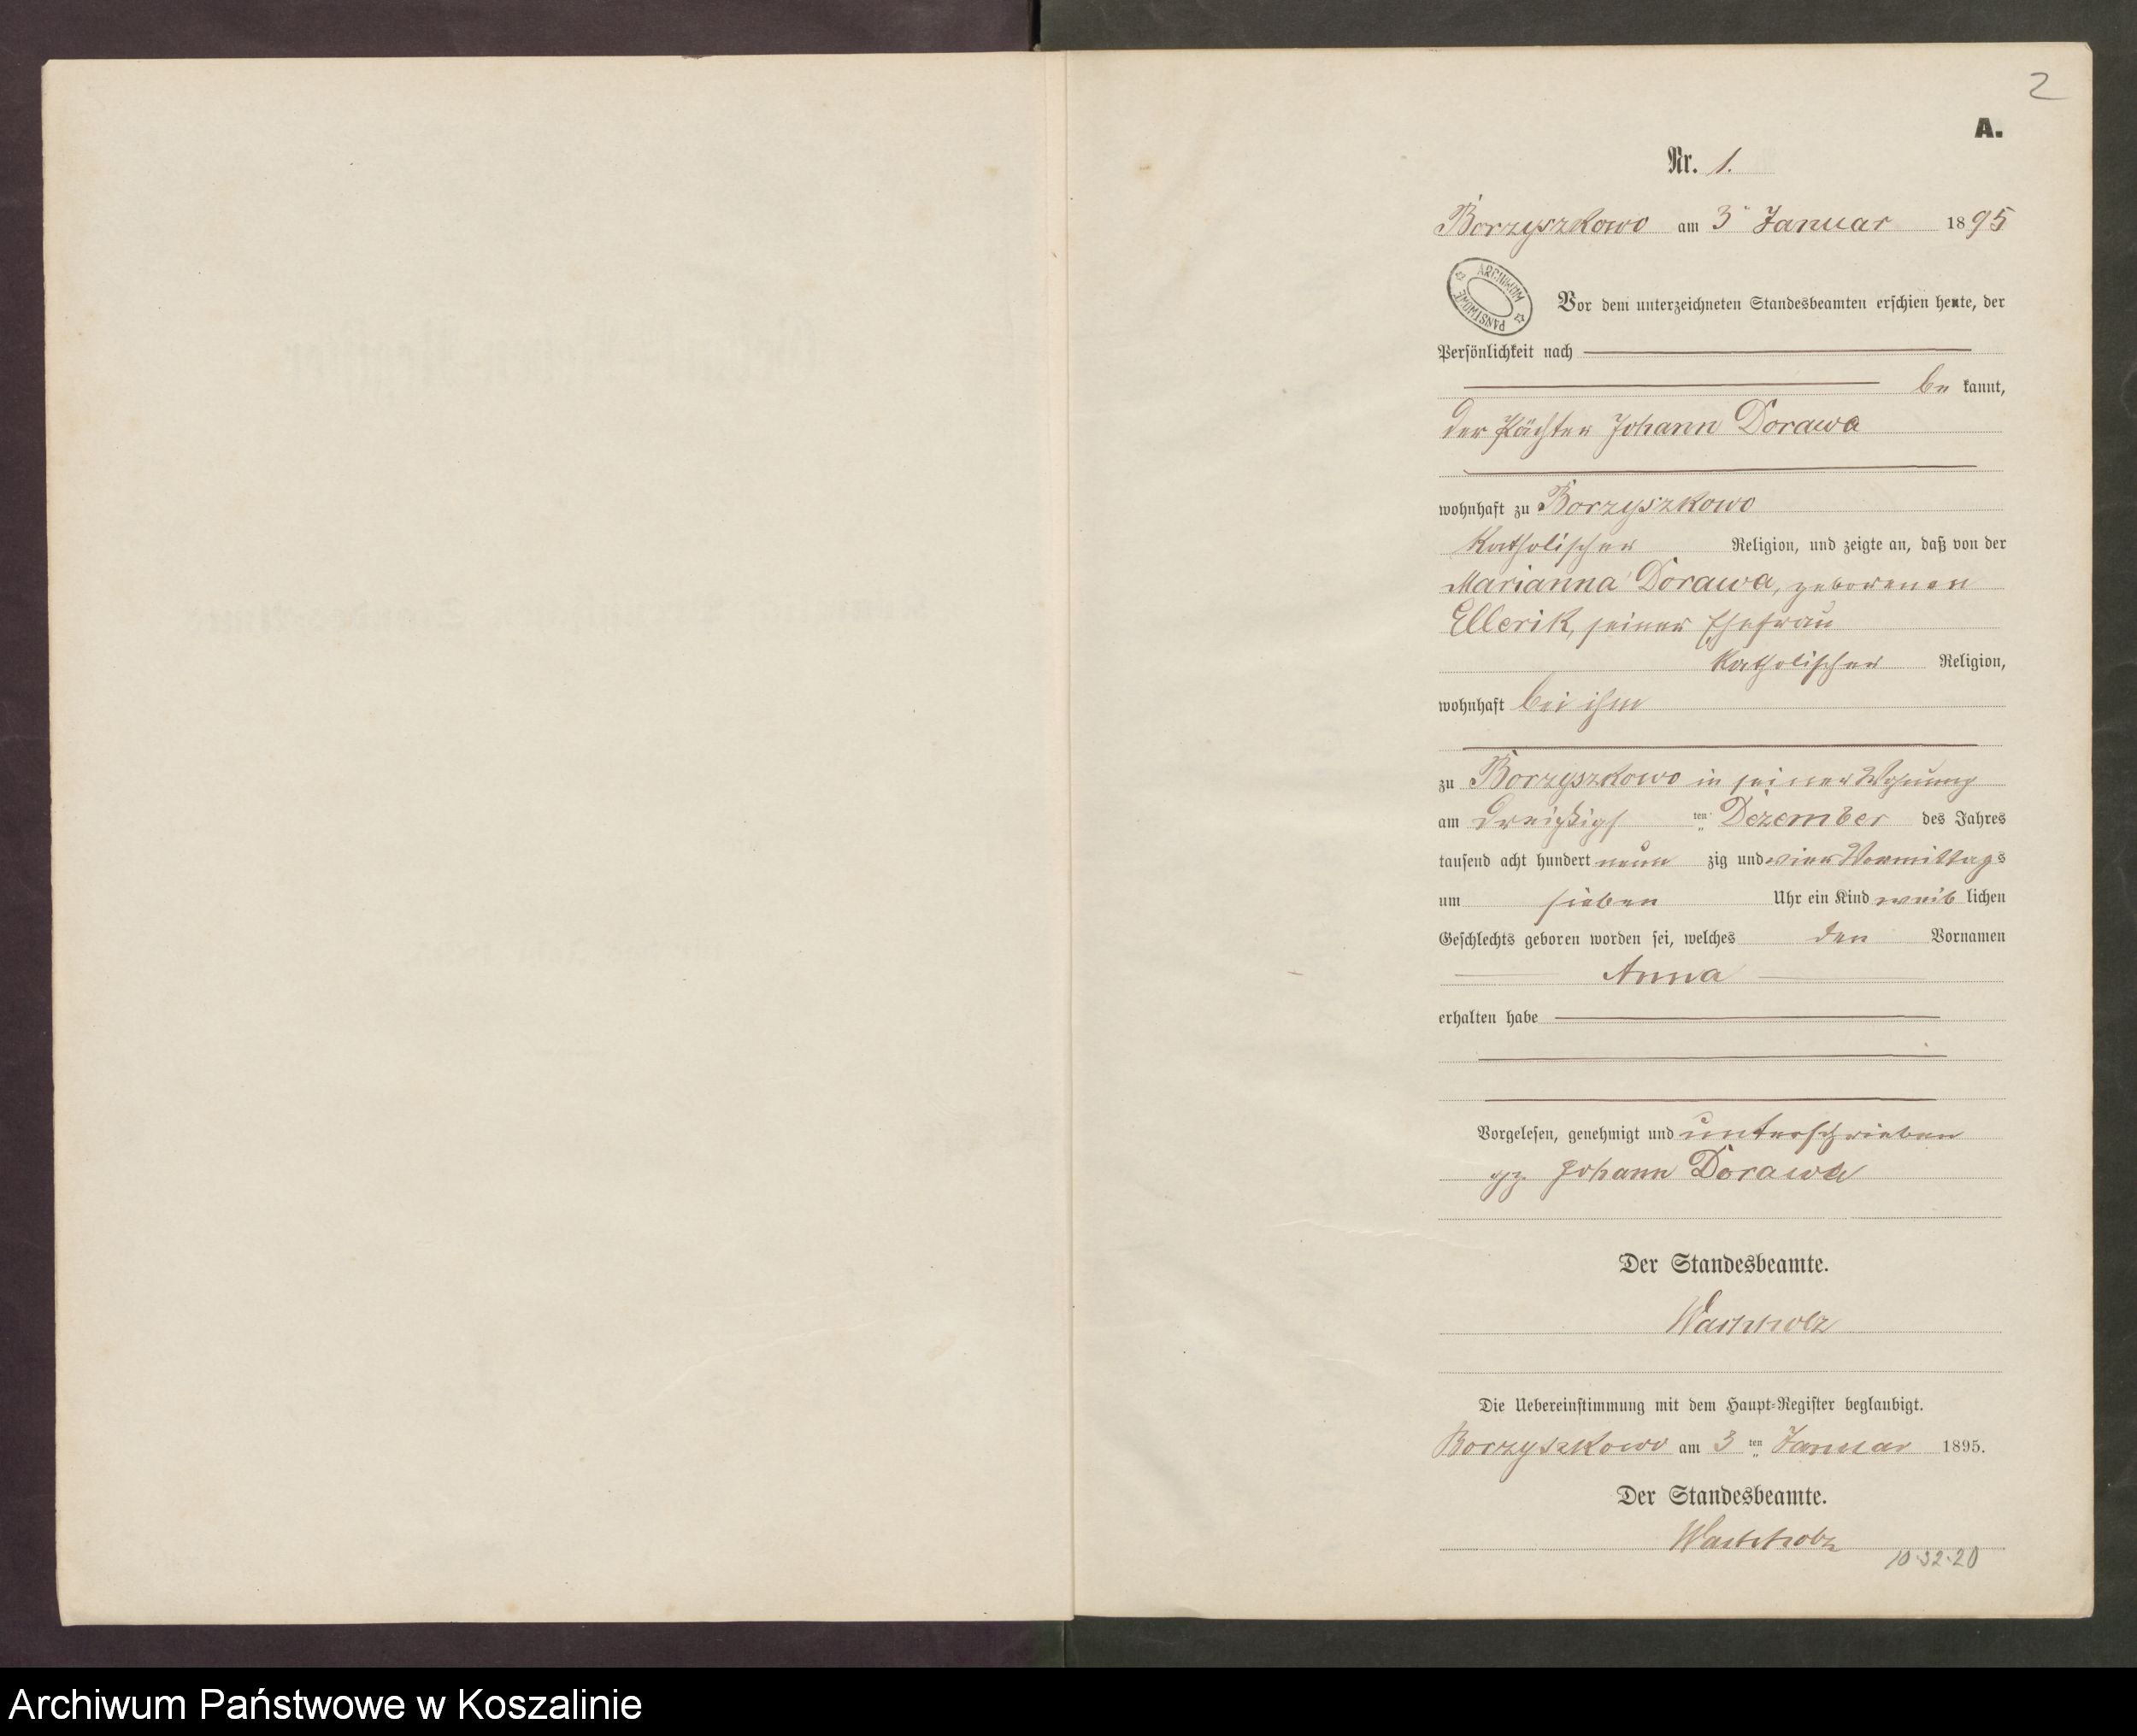 2
A.
Nr. 1.
Borzyszkowo am 3ⁿ Januar 1895
ARCHIWUM PAŃSTWOWE
Vor dem unterzeichneten Standesbeamten erschien heute, der
Persönlichkeit nach
be kannt,
der Pächter Johann Dorawa
wohnhaft zu Borzyszkowo
katholischer Religion, und zeigte an, daß von der
Marianna Dorawa, geborenen
Ellerik, seiner Ehefrau
katholischer Religion,
wohnhaft bei ihm
zu Borzyszkowo in seiner Wohnung
am dreißigs ten Dezember des Jahres
tausend acht hundert neun zig und vier Vormittags
um sieben Uhr ein Kind weib lichen
Geschlechts geboren worden sei, welches den Vornamen
Anna
erhalten habe
Vorgelesen, genehmigt und unterschrieben
gz Johann Dorawa
Der Standesbeamte.
Wachholz
Die Uebereinstimmung mit dem Haupt-Register beglaubigt.
Borzyszkowo am 3 ten Januar 1895.
Der Standesbeamte.
Wachholz
10·32·20
Archiwum Państwowe w Koszalinie